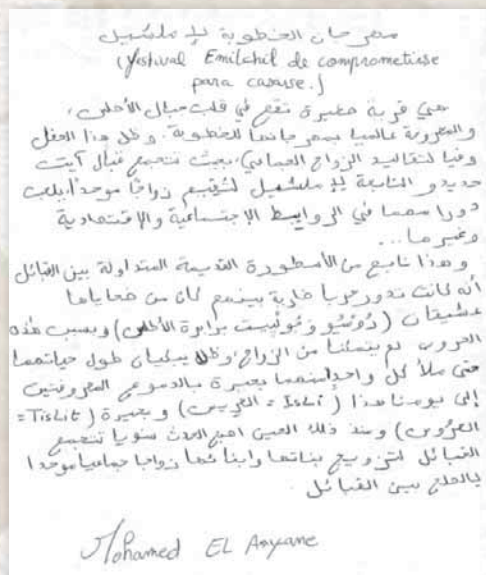 مهرجان الخطوبة لإملشيل
(Festival Emilchil de comprometirse
para casarse.)
هي قرية صغيرة تقع في قلب جبال الأطلس،
والمعروفة عالميا بمهرجانها للخطوبة. وظل هذا الحفل
وفيا لتقاليد الزواج الجماعي، بحيث تتجمع قبائل آيت
حديدو التابعة لإملشيل لتقيم زواجا موحدا، يلعب
دورا مهما في الروابط الإجتماعية والإقتصادية
وغيرها...
وهذا نابع من الأسطورة القديمة المتداولة بين القبائل
أنه كانت تدور حربا ضارية بينهم كان من ضحاياها
عشيقان ( برابرة الأطلس) وبسبب هذه
الحروب لم يتمكنا من الزواج، وظلا يبكيان طول حياتهما
حتى ملأ كل واحد منهما بحيرة بالدموع المعروفتين
إلى يومنا هذا (Isli = العريس) و بحيرة (Tislit =
العروس) ومنذ ذلك الحين اصبح الحدث سنويا تتجمع
القبائل لتزويج بناتها وابنائها زواجا جماعيا موحدا
بالصلح بين القبائل.
Mohamed EL